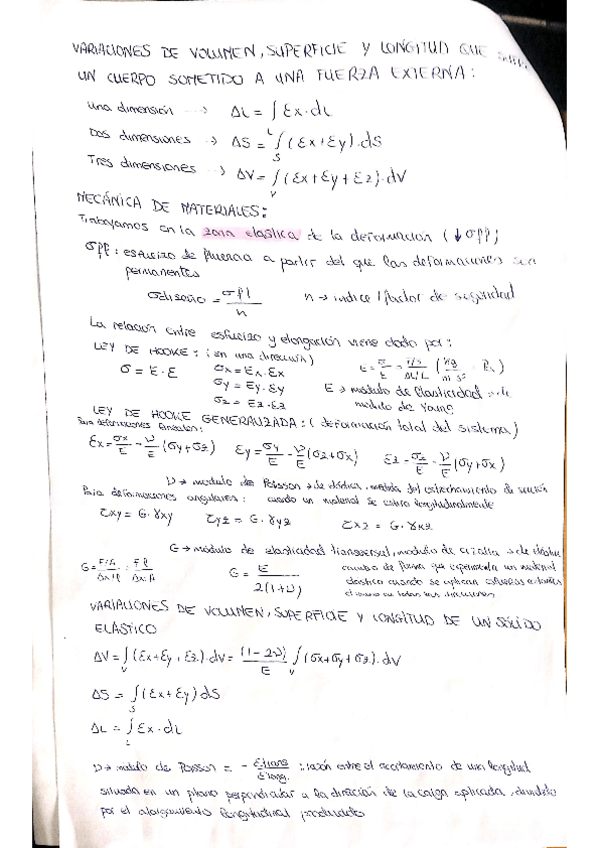 VARIACIONES DE VOLUMEN, SUPERFICIE Y LONGITUD QUE
UN CUERPO SOMETIDO A UNA FUERZA EXTERNA:
Una dimensión ⇢ ΔL = ∫_L εx·dL
Dos dimensiones ⇢ ΔS = ∫_S (εx+εy)·dS
Tres dimensiones ⇢ ΔV = ∫_V (εx+εy+εz)·dV
MECÁNICA DE MATERIALES:
Trabajamos en la zona elástica de la deformación (↓σpl)
σpl: esfuerzo de fluencia a partir del que las deformaciones son
permanentes
σdiseño = σpl / n n → indice / factor de seguridad
La relación entre esfuerzo y elongación viene dado por:
LEY DE HOOKE: (en una dirección)
σ = E·ε σx = Ex·εx E = σ/ε = F/S / ΔL/L
σy = Ey·εy E → módulo de elasticidad
σz = Ez·εz módulo de Young
LEY DE HOOKE GENERALIZADA: (deformación total del sistema)
Para deformaciones lineales:
εx = σx/E - ν/E (σy+σz) εy = σy/E - ν/E (σz+σx) εz = σz/E - ν/E (σy+σx)
ν → modulo de Poisson → cte elástica, medida del estrechamiento de sección
Para deformaciones angulares: cuando un material se estira longitudinalmente
τxy = G·γxy τyz = G·γyz τxz = G·γxz
G → módulo de elasticidad transversal, modulo de cizalla → cte elástica
G = F/A / Δx/l = F l / Δx·A G = E / 2(1+ν) cambio de forma que experimenta un material
elástico cuando se aplican esfuerzos cortantes
VARIACIONES DE VOLUMEN, SUPERFICIE Y LONGITUD DE UN SÓLIDO
ELÁSTICO
ΔV = ∫_V (εx+εy+εz)·dV = (1-2ν)/E ∫_V (σx+σy+σz)·dV
ΔS = ∫_S (εx+εy) dS
ΔL = ∫_L εx·dL
ν → modulo de Poisson = - εtrans / εlong. : razón entre el acortamiento de una longitud
situada en un plano perpendicular a la dirección de la carga aplicada, dividido
por el alargamiento longitudinal producido